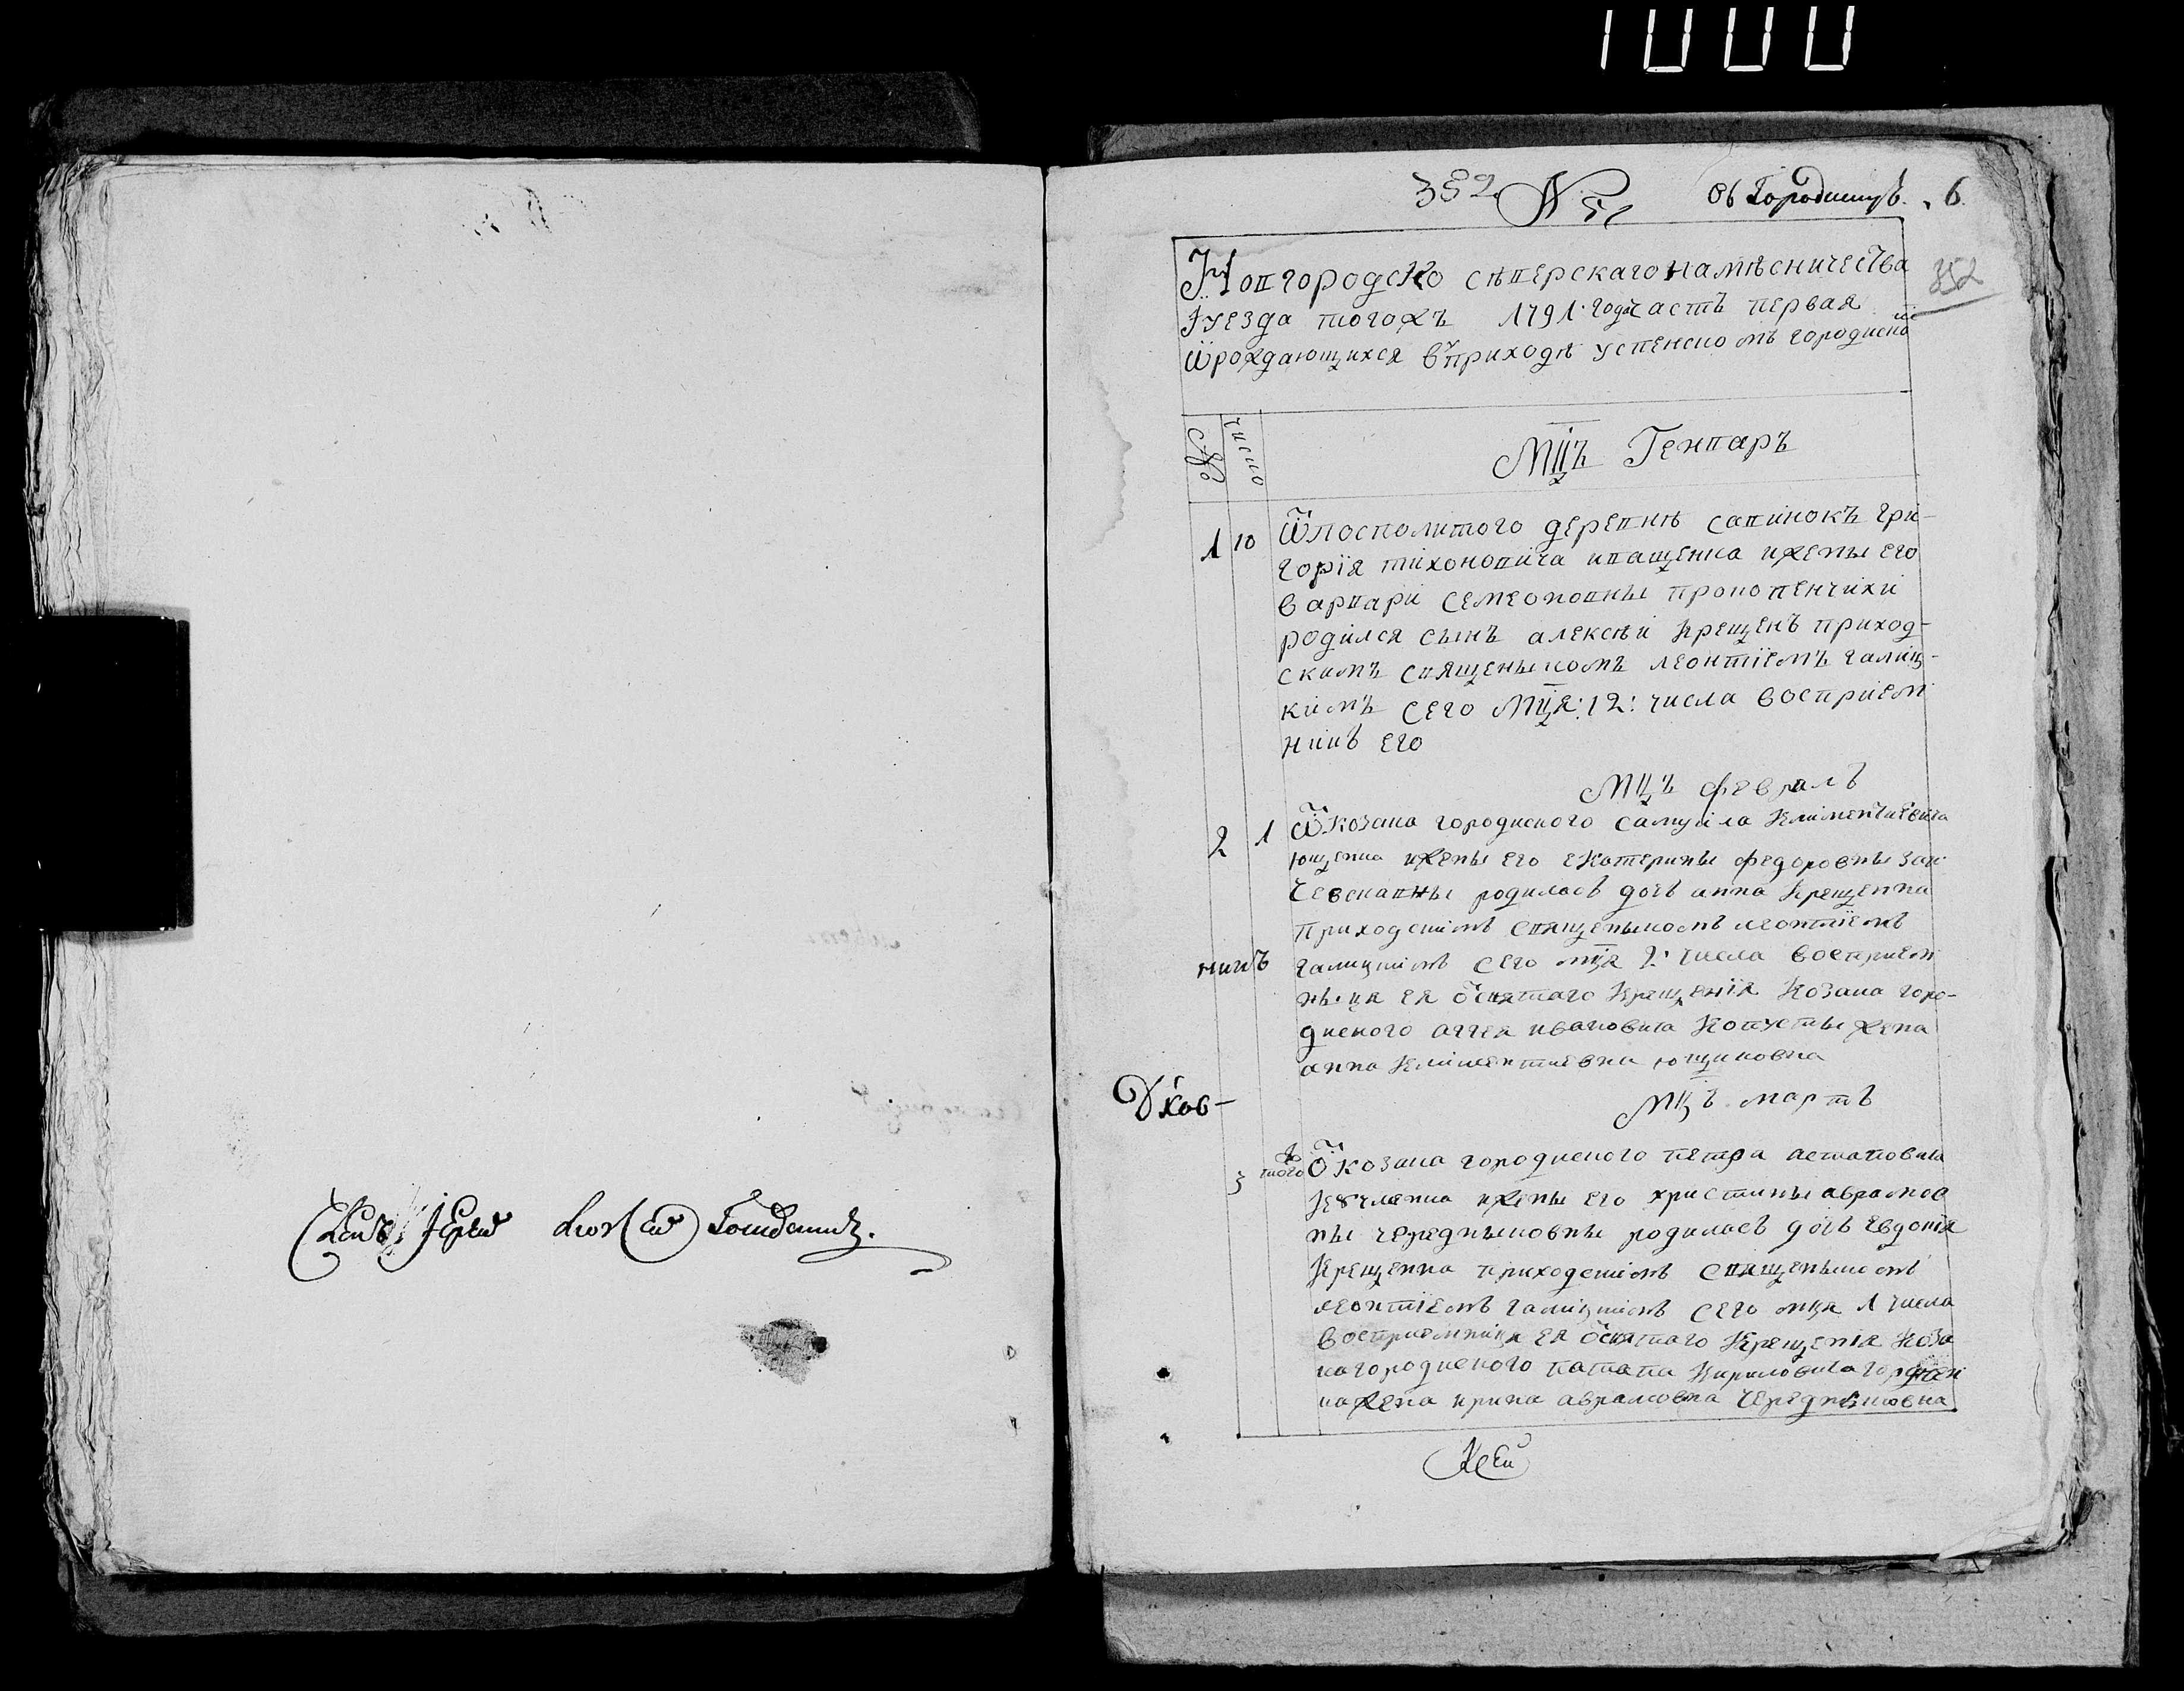 1000
352 №
Объ Городищу. 6
352
Новгородско сѣверскаго намѣсничества
Іуезда тогожъ 1791 года часть первая
Ѿрождающихся въприходѣ успенскомъ городиско
№ число
Мцъ Генваръ
1 10 Ѿпосполитого деревнѣ савинокъ гри-
горія тихоновича ивашенка ижены его
варвари семеоновны прокопенчихи
родился сынъ алексѣи крещенъ приход-
скимъ священыкомъ леонтіемъ галиц-
кимъ сего мца: 12: числа восприем
никъ его
Мцъ февралъ
2 1 Ѿкозака городиского самуила климентиевича
ющенка ижены его екатерины федоровны
родилась дочь анна крещенна
приходскимъ священыкомъ леонтіемъ
галицкимъ сего мца 2: числа восприем
никъ
ныца ея ѿсвятаго крещенія козака горо-
диского аггея ивановича капусты жена
анна климентиевна ющиковна
Мцъ мартъ
3 того Ѿкозака городиского петра астаповича
кузменка ижены его христины аврамов
ны чередныковны родилась дочь евдокія
крещенна приходскимъ священыкомъ
леонтіемъ галицкимъ сего мца 1 числа
восприемница ея ѿсвятаго крещенія коза
кагородиского патапа кириловича
кажена ирина аврамовна чередныковна
Іерей